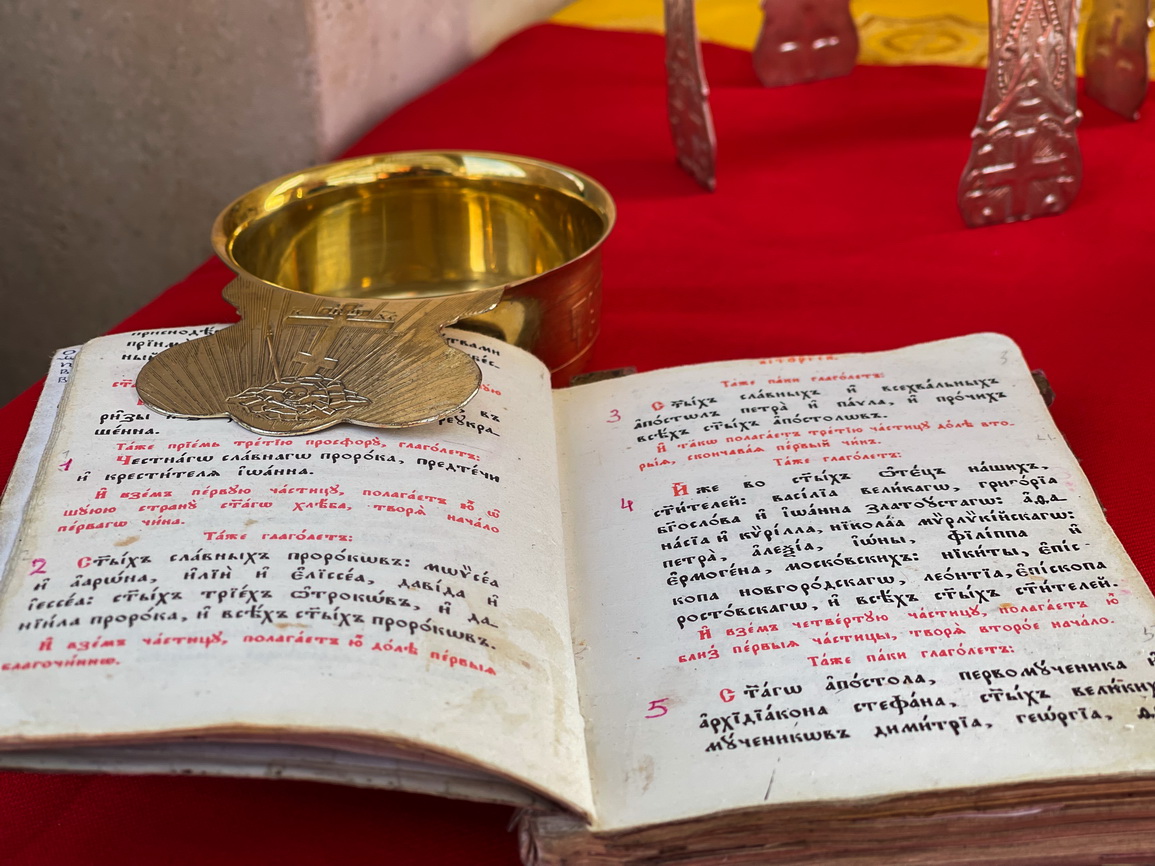 прїим
Та́же прїе́мь тре́тїю просфорꙋ̀, глаго́летъ:
Честна́гѡ сла́внагѡ проро́ка, предте́чи
и҆ крести́телѧ і҆ѡа́нна.
1
И҆ взе́мъ пе́рвꙋю ча́стицꙋ, полага́етъ ю҆̀ ѿ
шꙋ́юю странꙋ̀ ст҃а́гѡ хлѣ́ба, творѧ̀ нача́ло
пе́рвагѡ чи́на.
Та́же глаго́летъ:
2
Ст҃ы́хъ сла́вныхъ проро́кѡвъ: мѡѷсе́а
и҆ а҆арѡ́на, и҆лїѝ и҆ є҆лїссе́а, даві́да и҆
і҆ессе́а: ст҃ы́хъ трїе́хъ ѻ҆трокѡ́въ, и҆ да-
нїи́ла проро́ка, и҆ всѣ́хъ ст҃ы́хъ проро́кѡвъ.
И҆ взе́мъ ча́стицꙋ, полага́етъ ю҆̀ до́лѣ пе́рвыѧ
благочи́ннѡ.
3
Та́же па́ки глаго́летъ:
3
Ст҃ы́хъ сла́вныхъ и҆ всехва́льныхъ
а҆пⷭ҇то́лъ петра̀ и҆ па́ѵла, и҆ про́чихъ
всѣ́хъ ст҃ы́хъ а҆по́столѡвъ.
И҆ та́кѡ полага́етъ тре́тїю ча́стицꙋ до́лѣ вто-
ры́ѧ, сконча́ваѧ пе́рвый чи́нъ.
Та́же глаго́летъ:
4
И҆̀же во ст҃ы́хъ ѻ҆те́цъ на́шихъ,
ст҃и́телей: васі́лїа вели́кагѡ, григо́рїа
бг҃осло́ва и҆ і҆ѡа́нна златоꙋ́стагѡ: а҆ѳа-
на́сїа и҆ кѷрі́лла, нїкола́а мѷрлѷкі́йскагѡ:
петра̀, а҆леѯі́а, і҆ѡ́ны, фїлі́ппа и҆
є҆рмоге́на, моско́вскихъ: ники́ты, є҆пі́с-
копа новгоро́дскагѡ, лео́нтїа, є҆пі́скопа
росто́вскагѡ, и҆ всѣ́хъ ст҃ы́хъ ст҃и́телей.
И҆ взе́мъ четве́ртꙋю ча́стицꙋ, полага́етъ ю҆̀
бли́з̾ пе́рвыѧ ча́стицы, творѧ̀ второ́е нача́ло.
Та́же па́ки глаго́летъ:
5
Ст҃а́гѡ а҆по́стола, первомꙋ́ченика и҆
а҆рхїдїа́кона стефа́на, ст҃ы́хъ вели́кихъ
мꙋ́ченикѡвъ дими́трїа, геѡ́ргїа,